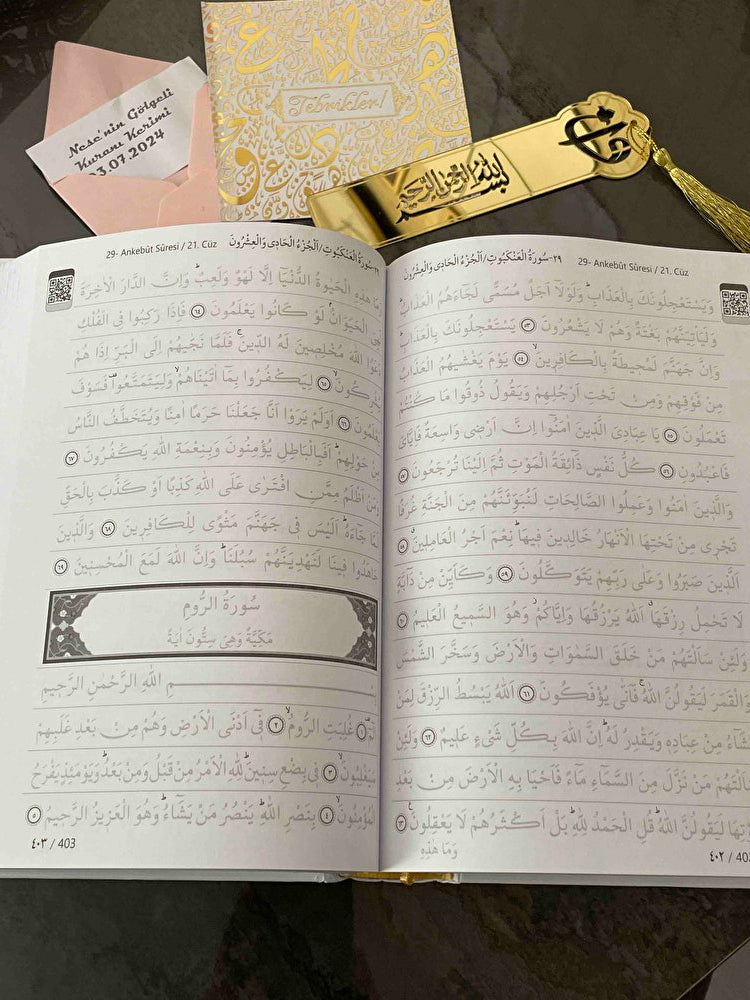 Neşe'nin Gölgeli
Kuranı Kerimi
03.07.2024
Tebrikler!
بسم الله الرحمن الرحيم
٢٩-سُورَةُ الْعَنْكَبُوتِ/اَلْجُزْءُ الْحَادِى وَالْعِشْرُونَ 29- Ankebût Sûresi / 21. Cüz
وَيَسْتَعْجِلُونَكَ بِالْعَذَابِۜ وَلَوْلَٓا اَجَلٌ مُسَمًّى لَجَٓاءَهُمُ الْعَذَابُۜ
وَلَيَأْتِيَنَّهُمْ بَغْتَةً وَهُمْ لَا يَشْعُرُونَ ٥٣ يَسْتَعْجِلُونَكَ بِالْعَذَابِۜ
وَاِنَّ جَهَنَّمَ لَمُحِيطَةٌ بِالْكَافِرِينَۙ ٥٤ يَوْمَ يَغْشٰيهُمُ الْعَذَابُ
مِنْ فَوْقِهِمْ وَمِنْ تَحْتِ اَرْجُلِهِمْ وَيَقُولُ ذُوقُوا مَا كُنْتُمْ
تَعْمَلُونَ ٥٥ يَا عِبَادِىَ الَّذِينَ اٰمَنُٓوا اِنَّ اَرْضِى وَاسِعَةٌ فَاِيَّاىَ
فَاعْبُدُونِ ٥٦ كُلُّ نَفْسٍ ذَٓائِقَةُ الْمَوْتِ ثُمَّ اِلَيْنَا تُرْجَعُونَ ٥٧
وَالَّذِينَ اٰمَنُوا وَعَمِلُوا الصَّالِحَاتِ لَنُبَوِّئَنَّهُمْ مِنَ الْجَنَّةِ غُرَفًا
تَجْرِى مِنْ تَحْتِهَا الْاَنْهَارُ خَالِدِينَ فِيهَاۜ نِعْمَ اَجْرُ الْعَامِلِينَۗ ٥٨
اَلَّذِينَ صَبَرُوا وَعَلٰى رَبِّهِمْ يَتَوَكَّلُونَ ٥٩ وَكَاَيِّنْ مِنْ دَٓابَّةٍ
لَا تَحْمِلُ رِزْقَهَاۗ اَللّٰهُ يَرْزُقُهَا وَاِيَّاكُمْۘ وَهُوَ السَّمِيعُ الْعَلِيمُ ٦٠
وَلَئِنْ سَاَلْتَهُمْ مَنْ خَلَقَ السَّمٰوَاتِ وَالْاَرْضَ وَسَخَّرَ الشَّمْسَ
وَالْقَمَرَ لَيَقُولُنَّ اللّٰهُۚ فَاَنّٰى يُؤْفَكُونَ ٦١ اَللّٰهُ يَبْسُطُ الرِّزْقَ لِمَنْ
يَشَٓاءُ مِنْ عِبَادِهٖ وَيَقْدِرُ لَهُۜ اِنَّ اللّٰهَ بِكُلِّ شَىْءٍ عَلِيمٌ ٦٢ وَلَئِنْ
سَاَلْتَهُمْ مَنْ نَزَّلَ مِنَ السَّمَٓاءِ مَٓاءً فَاَحْيَا بِهِ الْاَرْضَ مِنْ بَعْدِ
مَوْتِهَا لَيَقُولُنَّ اللّٰهُۜ قُلِ الْحَمْدُ لِلّٰهِۜ بَلْ اَكْثَرُهُمْ لَا يَعْقِلُونَ۟ ٦٣
وَمَا هٰذِهِ
٤٠٢ / 402
29- Ankebût Sûresi / 21. Cüz ٢٩-سُورَةُ الْعَنْكَبُوتِ/اَلْجُزْءُ الْحَادِى وَالْعِشْرُونَ
وَمَا هٰذِهِ الْحَيٰوةُ الدُّنْيَٓا اِلَّا لَهْوٌ وَلَعِبٌۜ وَاِنَّ الدَّارَ الْاٰخِرَةَ
لَهِىَ الْحَيَوَانُۢ لَوْ كَانُوا يَعْلَمُونَ ٦٤ فَاِذَا رَكِبُوا فِى الْفُلْكِ
دَعَوُا اللّٰهَ مُخْلِصِينَ لَهُ الدِّينَۚ فَلَمَّا نَجّٰيهُمْ اِلَى الْبَرِّ اِذَا هُمْ
يُشْرِكُونَۙ ٦٥ لِيَكْفُرُوا بِمَٓا اٰتَيْنَاهُمْۙ وَلِيَتَمَتَّعُوا۠ فَسَوْفَ
يَعْلَمُونَ ٦٦ اَوَلَمْ يَرَوْا اَنَّا جَعَلْنَا حَرَمًا اٰمِنًا وَيُتَخَطَّفُ النَّاسُ
مِنْ حَوْلِهِمْۜ اَفَبِالْبَاطِلِ يُؤْمِنُونَ وَبِنِعْمَةِ اللّٰهِ يَكْفُرُونَ ٦٧
وَمَنْ اَظْلَمُ مِمَّنِ افْتَرٰى عَلَى اللّٰهِ كَذِبًا اَوْ كَذَّبَ بِالْحَقِّ
لَمَّا جَٓاءَهُۜ اَلَيْسَ فِى جَهَنَّمَ مَثْوًى لِلْكَافِرِينَ ٦٨ وَالَّذِينَ
جَاهَدُوا فِينَا لَنَهْدِيَنَّهُمْ سُبُلَنَاۜ وَاِنَّ اللّٰهَ لَمَعَ الْمُحْسِنِينَ ٦٩
سُورَةُ الرُّومِ
مَكِّيَّةٌ وَهِىَ سِتُّونَ اٰيَةً
بِسْمِ اللّٰهِ الرَّحْمٰنِ الرَّحِيمِ
الٓمٓۚ ١ غُلِبَتِ الرُّومُۙ ٢ فِٓى اَدْنَى الْاَرْضِ وَهُمْ مِنْ بَعْدِ غَلَبِهِمْ
سَيَغْلِبُونَۙ ٣ فِى بِضْعِ سِنِينَۜ لِلّٰهِ الْاَمْرُ مِنْ قَبْلُ وَمِنْ بَعْدُۜ وَيَوْمَئِذٍ يَفْرَحُ
الْمُؤْمِنُونَۙ ٤ بِنَصْرِ اللّٰهِۜ يَنْصُرُ مَنْ يَشَٓاءُۜ وَهُوَ الْعَزِيزُ الرَّحِيمُ ٥
٤٠٣ / 403